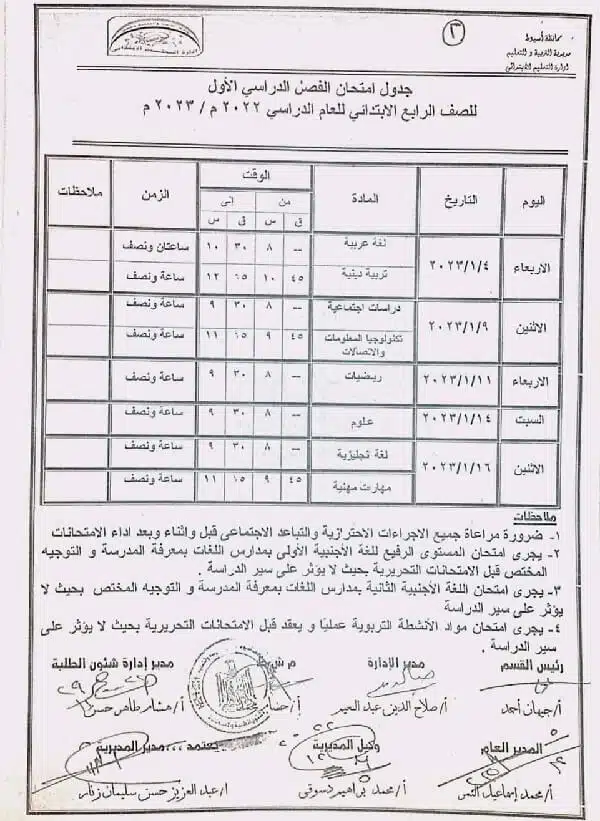 محافظة أسيوط
مديرية التربية والتعليم
ادارة التعليم الابتدائى
٣
جدول امتحان الفصل الدراسي الأول
للصف الرابع الابتدائي للعام الدراسي ٢٠٢٢ م / ٢٠٢٣ م
اليوم التاريخ المادة الوقت الزمن ملاحظات
من إلى
ق س ق س
الاربعاء ٢٠٢٣/١/٤ لغة عربية -- ٨ ٣٠ ١٠ ساعتان ونصف
تربية دينية ٤٥ ١٠ ١٥ ١٢ ساعة ونصف
الاثنين ٢٠٢٣/١/٩ دراسات اجتماعية -- ٨ ٣٠ ٩ ساعة ونصف
تكنولوجيا المعلومات والاتصالات ٤٥ ٩ ١٥ ١١ ساعة ونصف
الاربعاء ٢٠٢٣/١/١١ رياضيات -- ٨ ٣٠ ٩ ساعة ونصف
السبت ٢٠٢٣/١/١٤ علوم -- ٨ ٣٠ ٩ ساعة ونصف
الاثنين ٢٠٢٣/١/١٦ لغة نجليزية -- ٨ ٣٠ ٩ ساعة ونصف
مهارت مهنية ٤٥ ٩ ١٥ ١١ ساعة ونصف
ملاحظات
١- ضرورة مراعاة جميع الاجراءات الاحترازية والتباعد الاجتماعى قبل واثناء وبعد اداء الامتحانات
٢- يجرى امتحان المستوى الرفيع للغة الأجنبية الأولى بمدارس اللغات بمعرفة المدرسة و التوجيه
المختص قبل الامتحانات التحريرية بحيث لا يؤثر على سير الدراسة .
٣- يجرى امتحان اللغة الأجنبية الثانية بمدارس اللغات بمعرفة المدرسة و التوجيه المختص بحيث لا
يؤثر على سير الدراسة
٤- يجرى امتحان مواد الأنشطة التربوية عمليا و يعقد قبل الامتحانات التحريرية بحيث لا يؤثر على
سير الدراسة .
رئيس القسم مدير الإدارة مدير إدارة شئون الطلبة
أ/ جيهان أحمد أ/ صلاح الدين عبد الحميد أ/ هشام طاهر حسن
المدير العام وكيل المديرية يعتمد ،،، مدير المديرية
أ/ محمد إسماعيل أ/ محمد إبراهيم دسوقى أ/ عبد العزيز حسن سليمان